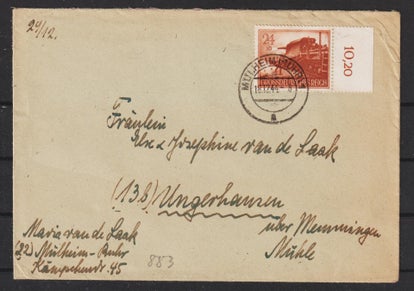 24/12.
24
GROSSDEUTSCHES REICH
10,20
MÜLHEIM (RUHR)
a
Fräulein
Else u. Josephine van de Laak
(13b) Ungerhausen
über Memmingen
Mühle
Maria van de Laak
(22) Mülheim-Ruhr
45
883